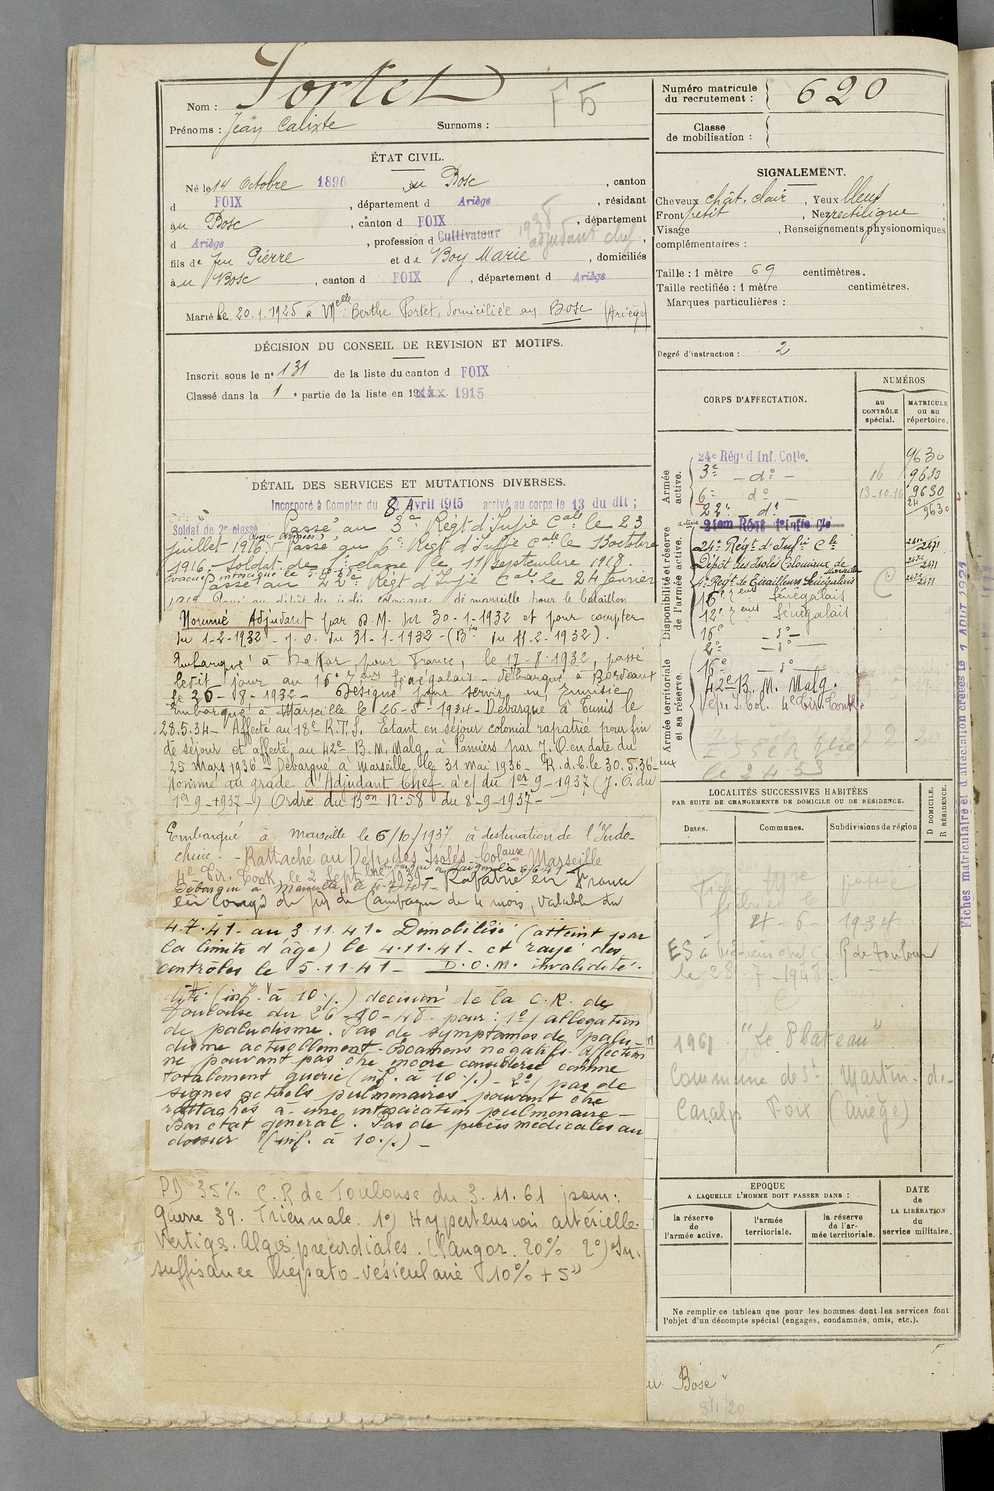 Nom : Portet
F 5
Prénoms : Jean Calixte Surnoms :
ÉTAT CIVIL.
Né le 14 Octobre 1896, au Bosc, canton
d FOIX, département d Ariège, résidant
au Bosc, canton d FOIX, département
d Ariège, profession d Cultivateur 1938 adjudant chef
fils de feu Pierre et de Boy Marie, domiciliés
à au Bosc, canton d FOIX, département d Ariège
Marié le 20.1.1925 à Melle Berthe Portet, domiciliée au Bosc (Ariège)
DÉCISION DU CONSEIL DE REVISION ET MOTIFS.
Inscrit sous le n° 131 de la liste du canton d FOIX
Classé dans la 1e partie de la liste en 1915
DÉTAIL DES SERVICES ET MUTATIONS DIVERSES.
Incorporé à Compter du 8 Avril 1915 arrivé au corps le 13 du dit ;
Soldat de 2e classe Passé au 3e Régt d'Infie Cale le 23
juillet 1916. Passé au 6e Régt d'Inffie Cale le 13 octobre
1916. Soldat de 1e classe le 11 septembre 1918.
Passé au 22e Régt d'Infie Cale le 24 février
Nommé Adjudant par D.M. du 30-1-1932 et pour compter
du 1-2-1932 - J.O. du 31-1-1932 - (Bin du 11-2-1932).
Embarqué à Dakar pour France, le 17-8-1932, passé
le dit jour au 16e Sénégalais - débarqué à Bordeaux
le 26-8-1932 - Désigné pour servir en Tunisie
Embarqué à Marseille le 26-5-1934 - Débarqué à Tunis le
28.5.34 - Affecté au 18e R.T.S. Etant en séjour colonial rapatrié pour fin
de séjour et affecté au 42e B.M. Malg. à Pamiers par J.O. en date du
25 mars 1936 - Débarqué à Marseille le 31 mai 1936 - R.d.l.c le 30.5.36-
Nommé au grade d'Adjudant Chef à c/ du 1er 9-1937 (J.O. du
1er 9-1937-) Ordre du Bon N° 58 du 8-9-1937-
Embarqué à Marseille le 6/10/1937 à destination de l'Indo-
chine. - Rattaché au Dep. des Isolés Colaux Marseille
4e Tir. Tonk. le 2 Septbre 1939
Débarqué à Marseille Rapatrié en France
en congé de fin de Campagne de 4 mois, valable du
4.7.41 au 3.11.41. Démobilisé (atteint par
la limite d'âge) le 4.11.41 - et rayé des
contrôles le 5.11.41 - D.O.M. invalidité.
(inf. à 10 %) décision de la C.R. de
Toulouse du 26-10-48 pour : 1°/ allégation
de paludisme. Pas de symptômes de palu-
disme actuellement - Examens négatifs. Affection
ne pouvant pas être encore considérée comme
totalement guérie (inf. à 10 %) - 2°/ pas de
signes actuels pulmonaires pouvant être
rattachés à une intoxication pulmonaire -
Bon état général. Pas de pièces médicales au
dossier (inf. à 10 %) -
PD 35% C.R. de Toulouse du 3.11.61 pour :
Guerre 39. Triennale. 1°) Hypertension artérielle.
Vertiges. Algies précordiales. Clangor. 20% 2°) In-
suffisance hépato-vésiculaire 10% + 5"
Numéro matricule du recrutement : 620
Classe de mobilisation :
SIGNALEMENT.
Cheveux chât. clair, Yeux bleus
Front petit, Nez rectiligne
Visage , Renseignements physionomiques
complémentaires :
Taille : 1 mètre 69 centimètres.
Taille rectifiée : 1 mètre centimètres.
Marques particulières :
Degré d'instruction : 2
CORPS D'AFFECTATION.
NUMÉROS
au CONTRÔLE spécial.
MATRICULE ou au répertoire.
Armée active.
24e Régt d'Inf. Colle. 9630
3e - do - 16 9630
6e do - 13-10-16 9630
22e do 9630
Disponibilité et réserve de l'armée active.
24e Régt d'Infie Cle 2471
Dépôt des Isolés Coloniaux de Marseille 2471
1e Régt de Tirailleurs Sénégalais 2471
16e Sénégalais
12e Sénégalais
16e - do -
2e - do -
Armée territoriale et sa réserve.
16e - do -
42e B. M. Malg.
Dep. I. Col. 4e Tir. Tonk.
LOCALITÉS SUCCESSIVES HABITÉES
PAR SUITE DE CHANGEMENTS DE DOMICILE OU DE RÉSIDENCE.
Dates. Communes. Subdivisions de région
D DOMICILE. R RÉSIDENCE.
21-6-1934
R de Toulouse
1961 "Le Plateau"
Commune de St Martin-de-
Caralp Foix (Ariège)
EPOQUE
A LAQUELLE L'HOMME DOIT PASSER DANS :
la réserve de l'armée active.
l'armée territoriale.
la réserve de l'armée territoriale.
DATE de LA LIBÉRATION du service militaire.
Ne remplir ce tableau que pour les hommes dont les services font
l'objet d'un décompte spécial (engagés, condamnés, omis, etc.).
au Bosc"
8/1/20
Fiches matriculaire et d'affectation créées le 1 AOUT 1921